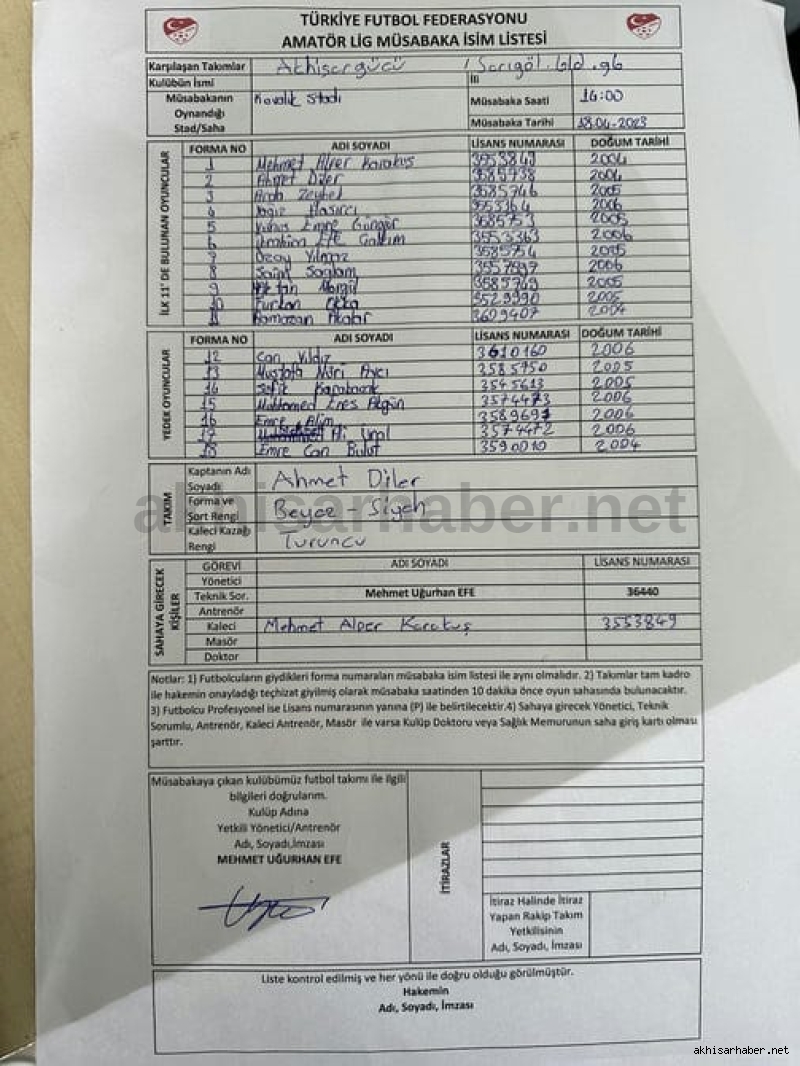 TÜRKİYE FUTBOL FEDERASYONU
AMATÖR LİG MÜSABAKA İSİM LİSTESİ
Karşılaşan Takımlar Akhisargücü / Sarıgöl. bld. gb
Kulübün İsmi İli
Müsabakanın Oynandığı Stad/Saha Kavaklık Stadı Müsabaka Saati 16:00
Müsabaka Tarihi 18.04-2023
İLK 11' DE BULUNAN OYUNCULAR
FORMA NO ADI SOYADI LİSANS NUMARASI DOĞUM TARİHİ
1 Mehmet Alper Karakuş 3553849 2004
2 Ahmet Diler 3585738 2004
3 Arda Zeybek 3585746 2005
4 Yağız Hasırcı 3553164 2006
5 Yunus Emre Güngör 3685753 2005
6 İbrahim Efe 3553363 2006
7 Özay Yılmaz 3585754 2005
8 Saim Sağlam 3557697 2006
9 3585749 2005
10 Furkan 3529990 2005
11 Ramazan Akalar 3609407 2004
YEDEK OYUNCULAR
FORMA NO ADI SOYADI LİSANS NUMARASI DOĞUM TARİHİ
12 Can Yıldız 3610160 2006
13 Mustafa Nuri Avcı 3585750 2005
14 Sefik Karabacak 3545613 2005
15 Muhammed Enes Akgün 3574473 2006
16 Emre Alim 3589697 2006
17 Ali Ünal 3574472 2006
18 Emre Can Bulut 3590010 2004
TAKIM
Kaptanın Adı Soyadı Ahmet Diler
Forma ve Şort Rengi Beyaz - Siyah
Kaleci Kazağı Rengi Turuncu
akhisarhaber.net
SAHAYA GİRECEK KİŞİLER
GÖREVİ ADI SOYADI LİSANS NUMARASI
Yönetici
Teknik Sor. Mehmet Uğurhan EFE 36440
Antrenör
Kaleci Mehmet Alper Karakuş 3553849
Masör
Doktor
Notlar: 1) Futbolcuların giydikleri forma numaraları müsabaka isim listesi ile aynı olmalıdır. 2) Takımlar tam kadro
ile hakemin onayladığı teçhizat giyilmiş olarak müsabaka saatinden 10 dakika önce oyun sahasında bulunacaktır.
3) Futbolcu Profesyonel ise Lisans numarasının yanına (P) ile belirtilecektir.4) Sahaya girecek Yönetici, Teknik
Sorumlu, Antrenör, Kaleci Antrenör, Masör ile varsa Kulüp Doktoru veya Sağlık Memurunun saha giriş kartı olması
şarttır.
Müsabakaya çıkan kulübümüz futbol takımı ile ilgili
bilgileri doğrularım.
Kulüp Adına
Yetkili Yönetici/Antrenör
Adı, Soyadı,İmzası
MEHMET UĞURHAN EFE
İTİRAZLAR
İtiraz Halinde İtiraz
Yapan Rakip Takım
Yetkilisinin
Adı, Soyadı, İmzası
Liste kontrol edilmiş ve her yönü ile doğru olduğu görülmüştür.
Hakemin
Adı, Soyadı, İmzası
akhisarhaber.net